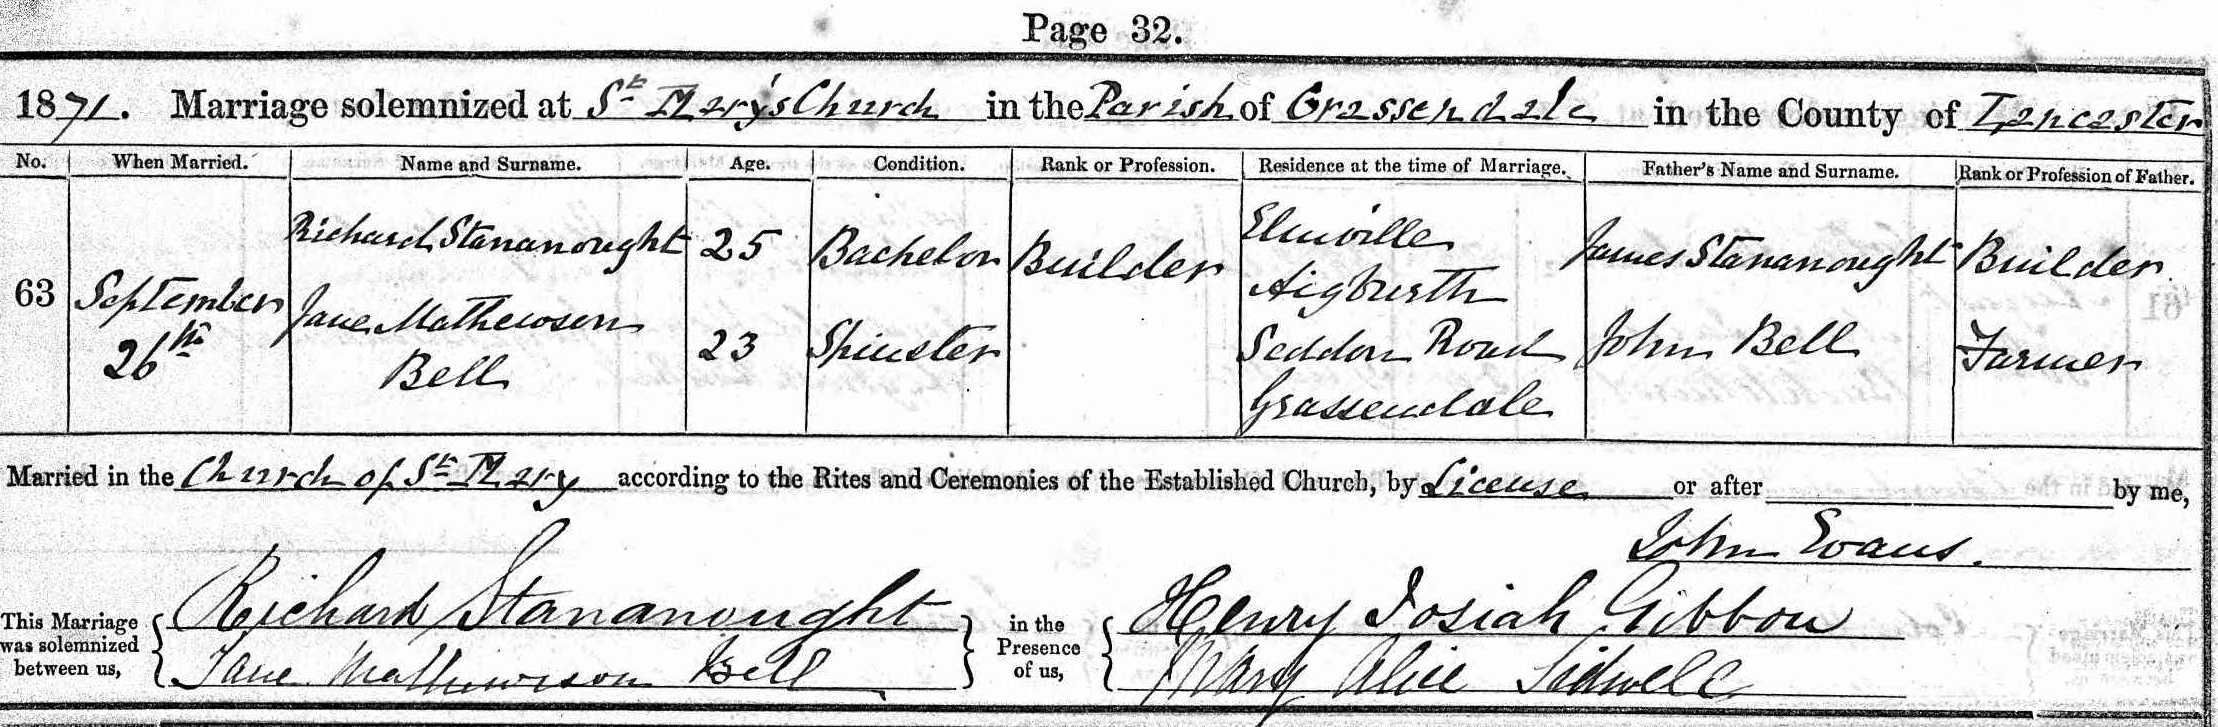 Page 32.
1871. Marriage solemnized at St Mary's Church in the Parish of Grassendale in the County of Lancaster
No. When Married. Name and Surname. Age. Condition. Rank or Profession. Residence at the time of Marriage. Father's Name and Surname. Rank or Profession of Father.
63 September 26th Richard Stananought 25 Bachelor Builder Elmville Aigburth James Stananought Builder
Jane Mathewson Bell 23 Spinster Seddon Road Grassendale John Bell Farmer
Married in the Church of St Mary according to the Rites and Ceremonies of the Established Church, by License or after by me,
John Evans.
This Marriage was solemnized between us, Richard Stananought in the Presence of us, Henry Josiah Gibbon
Jane Mathewson Bell Mary Alice Sidwell